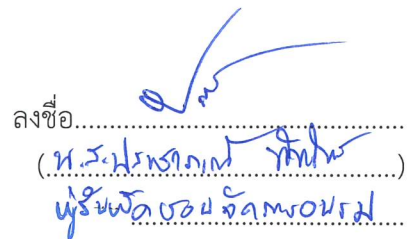 ลงชื่อ
(น.ส.ประชาภรณ์ )
ผู้รับผิดชอบจัดการอบรม